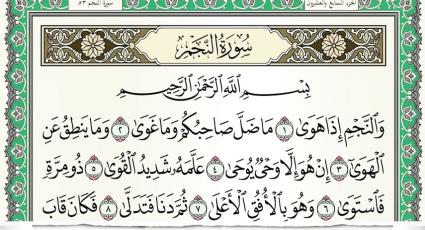 سورة النجم ٥٣
الجزء السابع والعشرون
سُورَةُ النَّجْمِ
بِسْمِ اللَّهِ الرَّحْمَٰنِ الرَّحِيمِ
وَالنَّجْمِ إِذَا هَوَىٰ ١ مَا ضَلَّ صَاحِبُكُمْ وَمَا غَوَىٰ ٢ وَمَا يَنطِقُ عَنِ
الْهَوَىٰ ٣ إِنْ هُوَ إِلَّا وَحْيٌ يُوحَىٰ ٤ عَلَّمَهُ شَدِيدُ الْقُوَىٰ ٥ ذُو مِرَّةٍ
فَاسْتَوَىٰ ٦ وَهُوَ بِالْأُفُقِ الْأَعْلَىٰ ٧ ثُمَّ دَنَا فَتَدَلَّىٰ ٨ فَكَانَ قَابَ